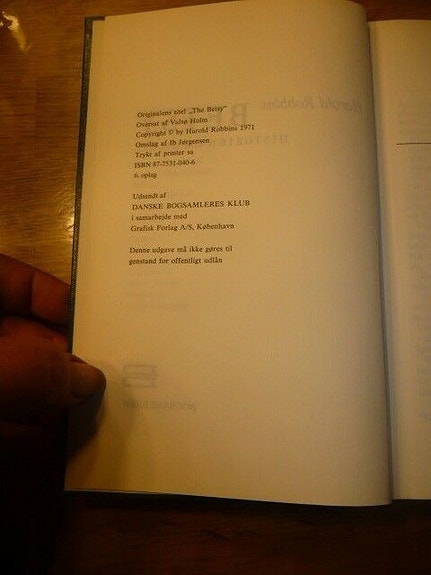 Originalens titel „The Betsy"
Oversat af Valsø Holm
Copyright © by Harold Robbins 1971
Omslag af Ib Jørgensen
Trykt af printer sa
ISBN 87-7531-040-6
6. oplag
Udsendt af
DANSKE BOGSAMLERES KLUB
i samarbejde med
Grafisk Forlag A/S, København
Denne udgave må ikke gøres til
genstand for offentligt udlån
Harold Robbins